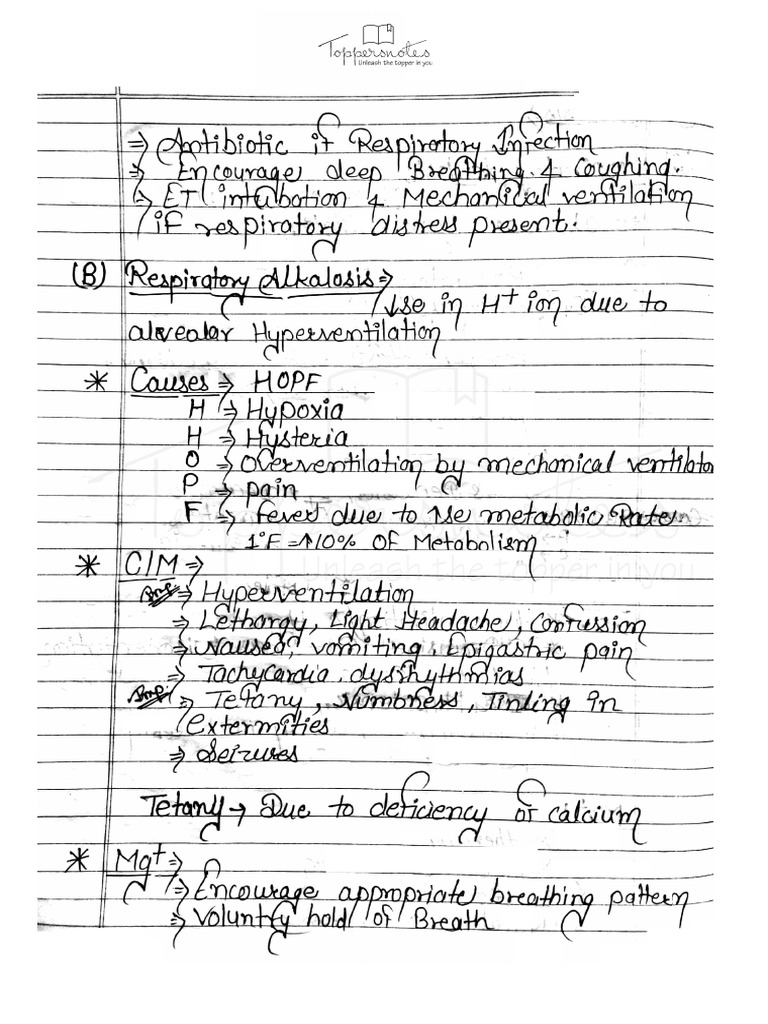 Toppersnotes
Unleash the topper in you
⇒ Antibiotic if Respiratory Infection
⇒ Encourage deep Breathing & Coughing.
⇒ ET intubation & Mechanical ventilation
if respiratory distress present.
(B) Respiratory Alkalosis ⇒
↓se in H+ ion due to
alveolar Hyperventilation
* Causes ⇒ HOPF
H ⇒ Hypoxia
H ⇒ Hysteria
O ⇒ Overventilation by mechanical ventilator
P ⇒ pain
F ⇒ fever due to ↑se metabolic Rate
1°F = ↑10% of Metabolism
* C/M ⇒
Imp ⇒ Hyperventilation
⇒ Lethargy, Light Headache, Confussion
⇒ Nausea, vomiting, Epigastric pain
⇒ Tachycardia, dysrhythmias
Imp ⇒ Tetany, Numbness, Tinling in
extermities
⇒ Seizures
Tetany → Due to deficiency of calcium
* Mgt ⇒
⇒ Encourage appropriate breathing pattern
⇒ Voluntry hold of Breath
Toppersnotes
Unleash the topper in you